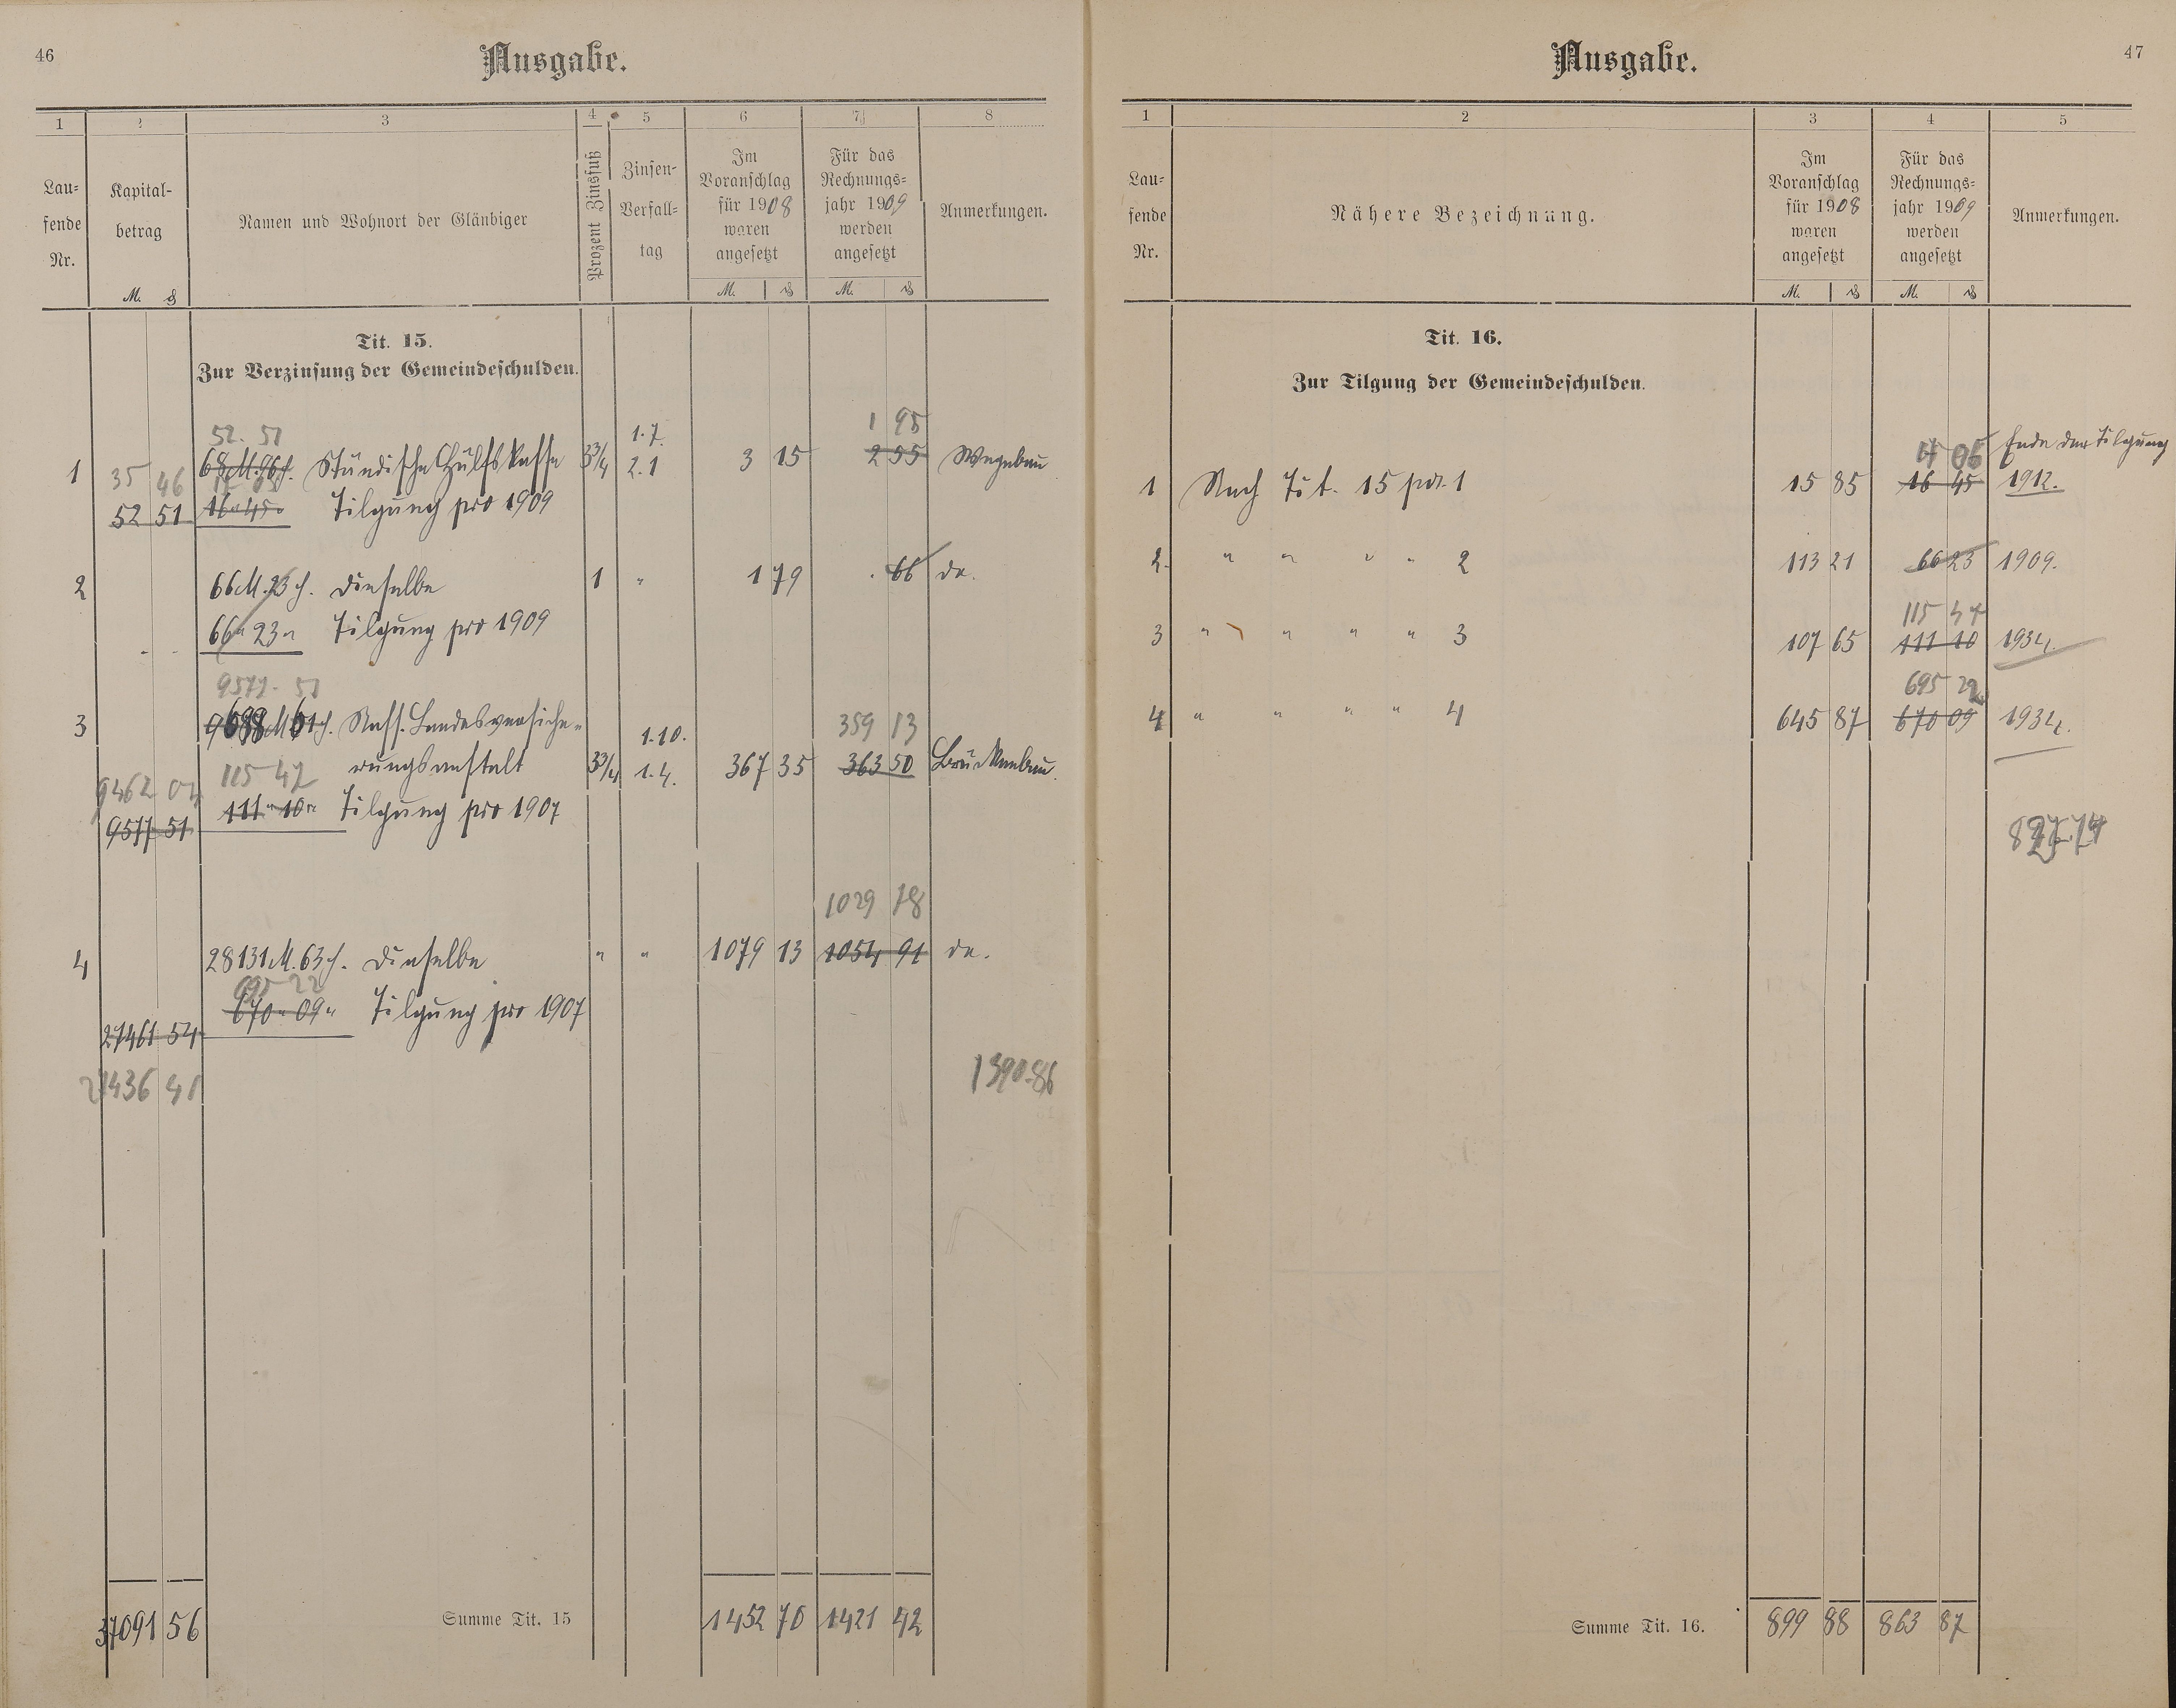 46
Ausgabe.
1 2 3 4 5 6 7 8
Lau-
fende
Nr.
Kapital-
betrag
M. ₰
Namen und Wohnort der Gläubiger
Prozent Zinsfuß
Zinsen-
Verfall-
tag
Im
Voranschlag
für 1908
waren
angesetzt
M. ₰
Für das
Rechnungs-
jahr 1909
werden
angesetzt
M. ₰
Anmerkungen.
Tit. 15.
Zur Verzinsung der Gemeindeschulden.
52. 51 1.7. 1 95
1 35 46 68 M. 96 ₰. Ständische Hülfskasse 3 3/4 2.1 3 15 2 55 Wegebau
52 51 16 " 45 " Tilgung pro 1909
2 66 M. 23 ₰. dieselbe 1 " 1 79 . 66 do.
66 " 23 " Tilgung pro 1909
9577. 51
3 9688 M 61 ₰. Nass. Landesversiche- 1.10. 359 13
115 47 rungsanstalt 3 3/4 1.4. 367 35 363 50 Brückenbau.
9462 04
9577 51 111 " 10 " Tilgung pro 1907
1029 78
4 28131 M. 63 ₰. dieselbe " " 1079 13 1054 91 do.
695 22
670 " 09 " Tilgung pro 1907
27461 54
27436 41 1390.86
37091 56 Summe Tit. 15 1452 70 1421 42
47
Ausgabe.
1 2 3 4 5
Lau-
fende
Nr.
Nähere Bezeichnung.
Im
Voranschlag
für 1908
waren
angesetzt
M. ₰
Für das
Rechnungs-
jahr 1909
werden
angesetzt
M. ₰
Anmerkungen.
Tit. 16.
Zur Tilgung der Gemeindeschulden.
17 05 Ende der Tilgung
1 Nach Tit. 15 pos. 1 15 85 16 45 1912.
2. " " " " 2 113 21 66 23 1909.
115 47
3 " " " " 3 107 65 111 10 1934.
695 22
4 " " " " 4 645 87 670 09 1934.
Summe Tit. 16. 899 88 863 87